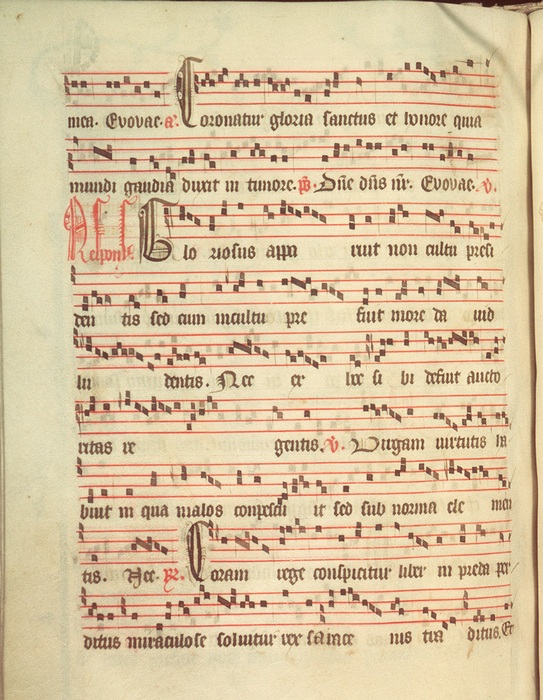 mea. Evovae. a. Coronatur gloria sanctus et honore quia
mundi gaudia duxit in timore. ps. Dñe dñs nr̄. Evovae. v.
Respons. Glo riosus appa ruit non cultu presi
den tis sed cum incultu pre fuit more da uid
lu dentis. Nec er lex si bi defuit aucto
ritas re gentis. v. Virgam uirtutis ha
buit in qua malos conpescu it sed sub norma cle men
tis. Nec. R. Coram rege conspicitur liber in preda per
ditus miraculose soluitur rex nis tra ditus. Et